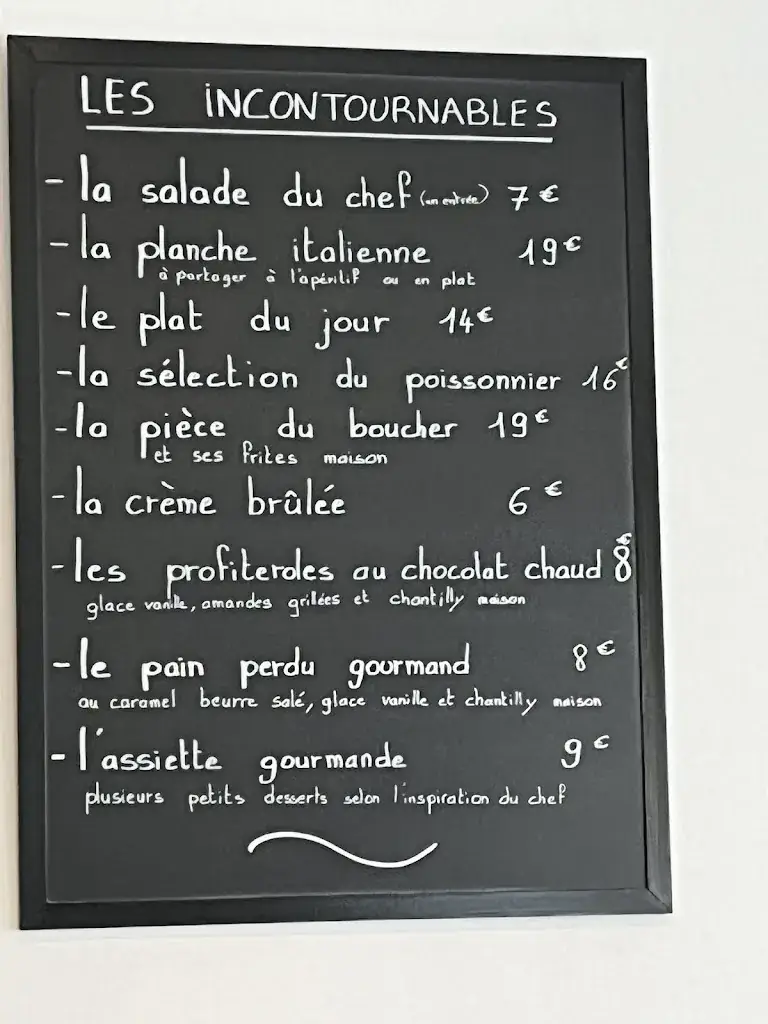 LES INCONTOURNABLES
- la salade du chef (en entrée) 7€
- la planche italienne 19€
à partager à l'apéritif ou en plat
- le plat du jour 14€
- la sélection du poissonnier 16€
- la pièce du boucher 19€
et ses frites maison
- la crème brûlée 6€
- les profiteroles au chocolat chaud 8€
glace vanille, amandes grillées et chantilly maison
- le pain perdu gourmand 8€
au caramel beurre salé, glace vanille et chantilly maison
- l'assiette gourmande 9€
plusieurs petits desserts selon l'inspiration du chef